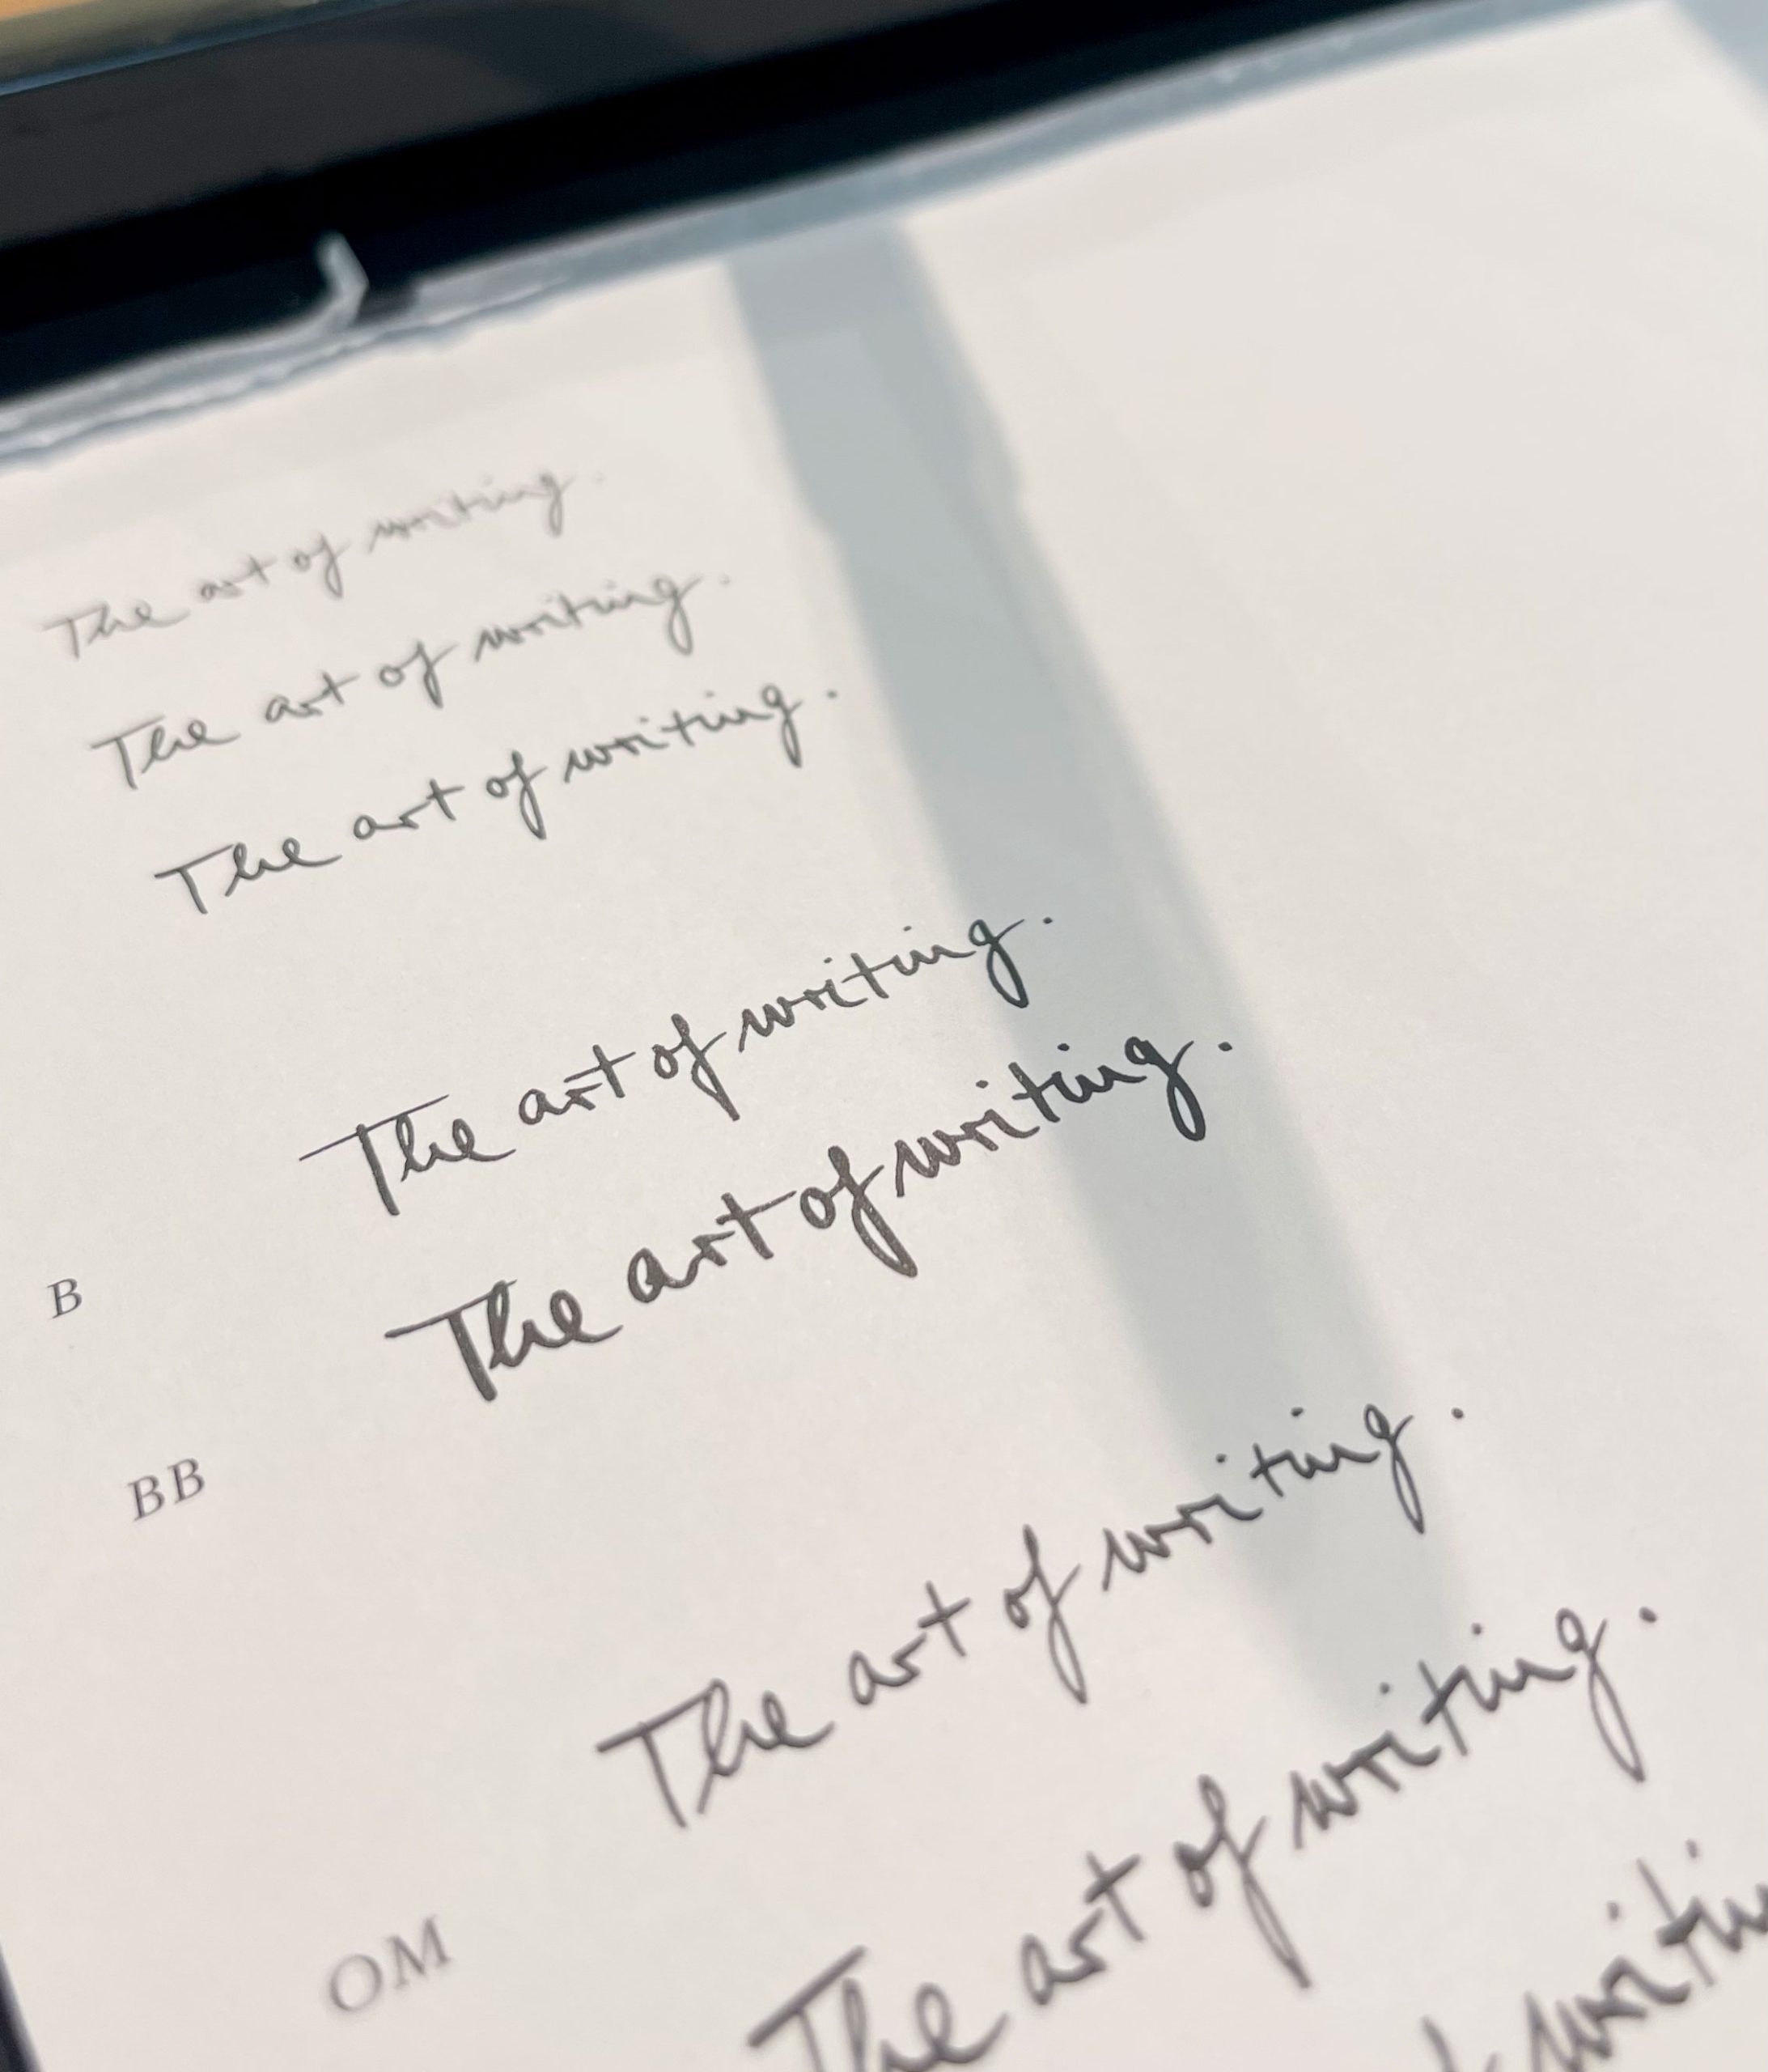 The art of writing.
The art of writing.
The art of writing.
B The art of writing.
BB The art of writing.
OM The art of writing.
The art of writing.